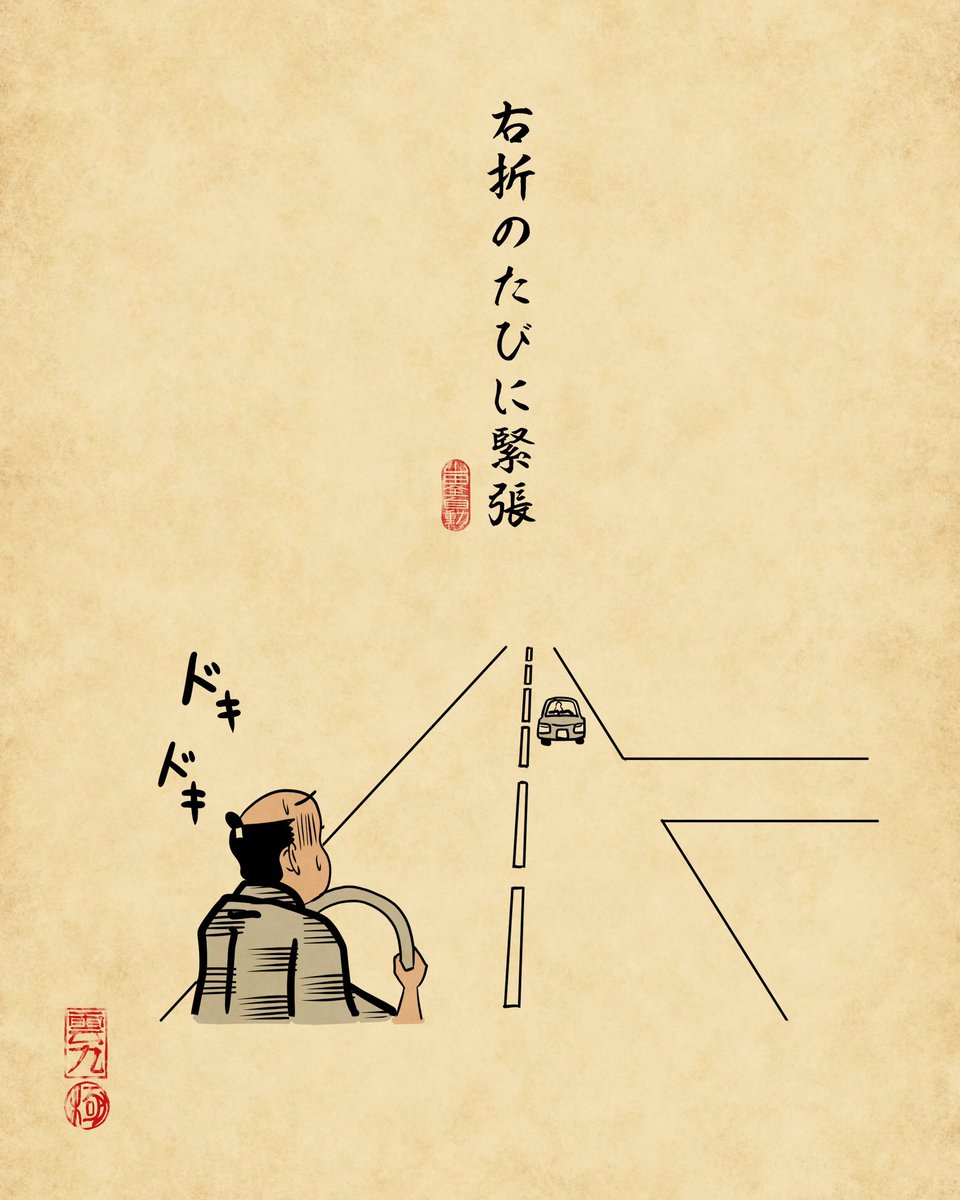 右折のたびに緊張
ドキ
ドキ
雲丸
極